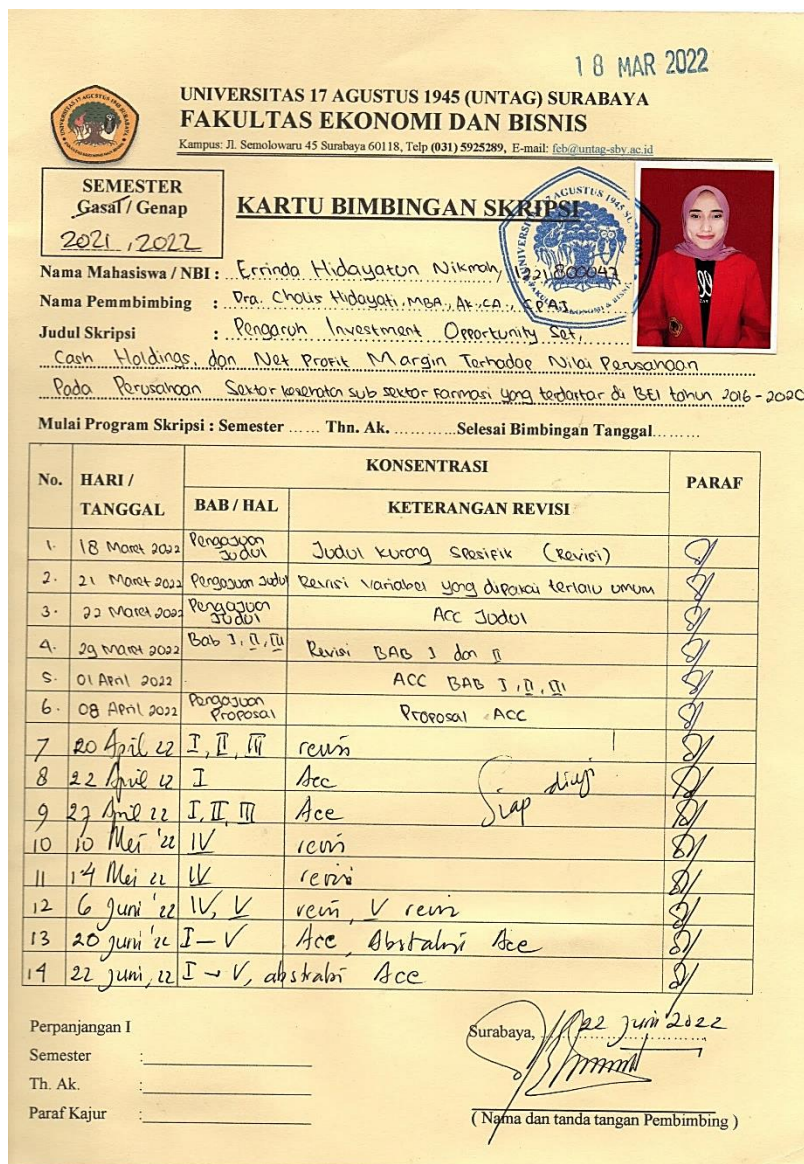 18 MAR 2022
UNIVERSITAS 17 AGUSTUS 1945 (UNTAG) SURABAYA
FAKULTAS EKONOMI DAN BISNIS
Kampus: Jl. Semolowaru 45 Surabaya 60118, Telp (031) 5925289, E-mail: feb@untag-sby.ac.id
SEMESTER
Gasal / Genap
2021 , 2022
KARTU BIMBINGAN SKRIPSI
Nama Mahasiswa / NBI : Errinda Hidayatun Nikmah, 1221800047
Nama Pemmbimbing : Dra. Cholis Hidayati, MBA., Ak., CA., CPAI
Judul Skripsi : Pengaruh Investment Opportunity Set,
Cash Holdings, dan Net Profit Margin Terhadap Nilai Perusahaan
Pada Perusahaan Sektor kesehatan sub sektor Farmasi yang terdaftar di BEI tahun 2016 - 2020
Mulai Program Skripsi : Semester ...... Thn. Ak. ............Selesai Bimbingan Tanggal.........
No. HARI / TANGGAL KONSENTRASI PARAF
BAB / HAL KETERANGAN REVISI
1. 18 Maret 2022 Pengajuan Judul Judul kurang spesifik (Revisi)
2. 21 Maret 2022 Pengajuan Judul Revisi variabel yang dipakai terlalu umum
3. 22 Maret 2022 Pengajuan Judul ACC Judul
4. 29 Maret 2022 Bab I, II, III Revisi BAB I dan II
5. 01 April 2022 ACC BAB I, II, III
6. 08 April 2022 Pengajuan Proposal Proposal ACC
7 20 April 22 I, II, III revisi
8 22 April 22 I Acc Siap diuji
9 27 April 22 I, II, III Acc
10 10 Mei '22 IV revisi
11 14 Mei 22 IV revisi
12 6 Juni '22 IV, V revisi, V revisi
13 20 Juni '22 I - V Acc, Abstraksi Acc
14 22 Juni, 22 I - V, abstraksi Acc
Perpanjangan I
Semester :
Th. Ak. :
Paraf Kajur :
Surabaya, 22 Juni 2022
( Nama dan tanda tangan Pembimbing )